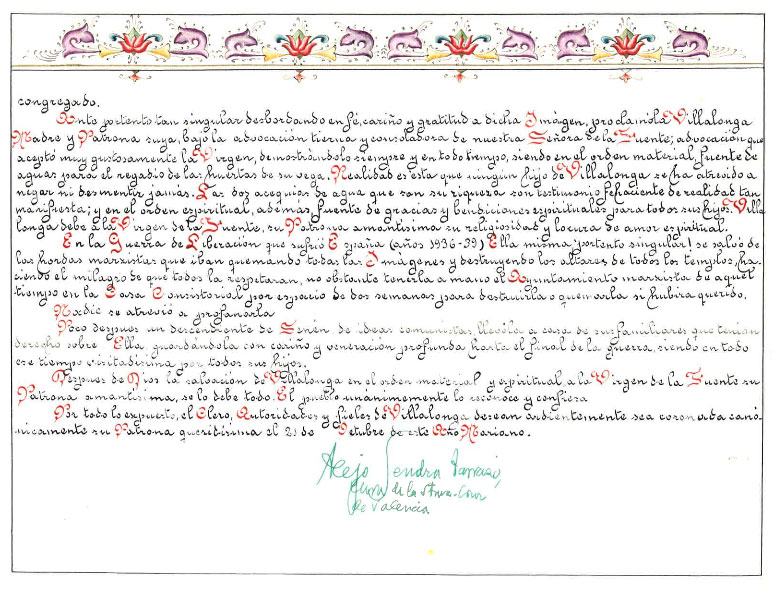 congregado.
Ante portento tan singular desbordando en fé, cariño y gratitud a dicha Imágen, proclamóla Villalonga
Madre y Patrona suya, bajo la advocación tierna y consoladora de nuestra Señora de la Fuente; advocación que
aceptó muy gustosamente la Virgen, demostrándolo siempre y en todo tiempo, siendo en el orden material, fuente de
aguas para el regadío de las huertas de su vega. Realidad es esta que ningún hijo de Villalonga se ha atrevido a
negar ni desmentir jamás. Las dos acequias de agua que son su riqueza son testimonio fehaciente de realidad tan
manifiesta; y en el orden espiritual, además, fuente de gracias y bendiciones espirituales para todos sus hijos. Villa
longa debe a la Virgen de la Fuente, su Patrona amantísima su religiosidad y locura de amor espiritual.
En la Guerra de Liberación que sufrió España (años 1936-39) Ella misma ¡portento singular! se salvó de
las hordas marxistas que iban quemando todas las Imágenes y destruyendo los altares de todos los templos, ha-
ciendo el milagro de que todos la respetaran, no obstante tenerla a mano el Ayuntamiento marxista de aquel
tiempo en la Casa Consistorial por espacio de dos semanas para destruirla o quemarla si hubira querido.
Nadie se atrevió a profanarla
Poco despues un descendente de Senén de ideas comunistas, llevóla a casa de sus familiares que tenían
derecho sobre Ella guardándola con cariño y veneración profunda hasta el final de la guerra, siendo en todo
ese tiempo visitadísima por todos sus hijos.
Despues de Dios la salvación de Villalonga en el orden material y espiritual, a la Virgen de la Fuente su
Patrona amantísima, se lo debe todo. El pueblo unánimemente lo reconoce y confiesa
Por todo lo expuesto, el Clero, Autoridades y fieles de Villalonga desean ardientemente sea coronada canó-
nicamente su Patrona queridísima el 21 de Octubre de este Año Mariano.
Alejo Sendra
Cura de la
de Valencia